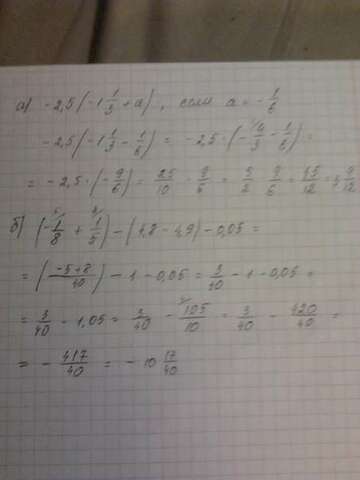 а) -2,5(-1 1/3 + a), если a = -1/6
-2,5(-1 1/3 - 1/6) = -2,5·(-4/3 - 1/6) =
= -2,5·(-9/6) = 25/10 · 9/6 = 5/2 · 9/6 = 45/12 = 3 9/12
б) (-1/8 + 1/5) - (5,8 - 4,9) - 0,05 =
= (-5+8/40) - 1 - 0,05 = 3/40 - 1 - 0,05 =
= 3/40 - 1,05 = 3/40 - 105/10 = 3/40 - 420/40 =
= - 417/40 = - 10 17/40